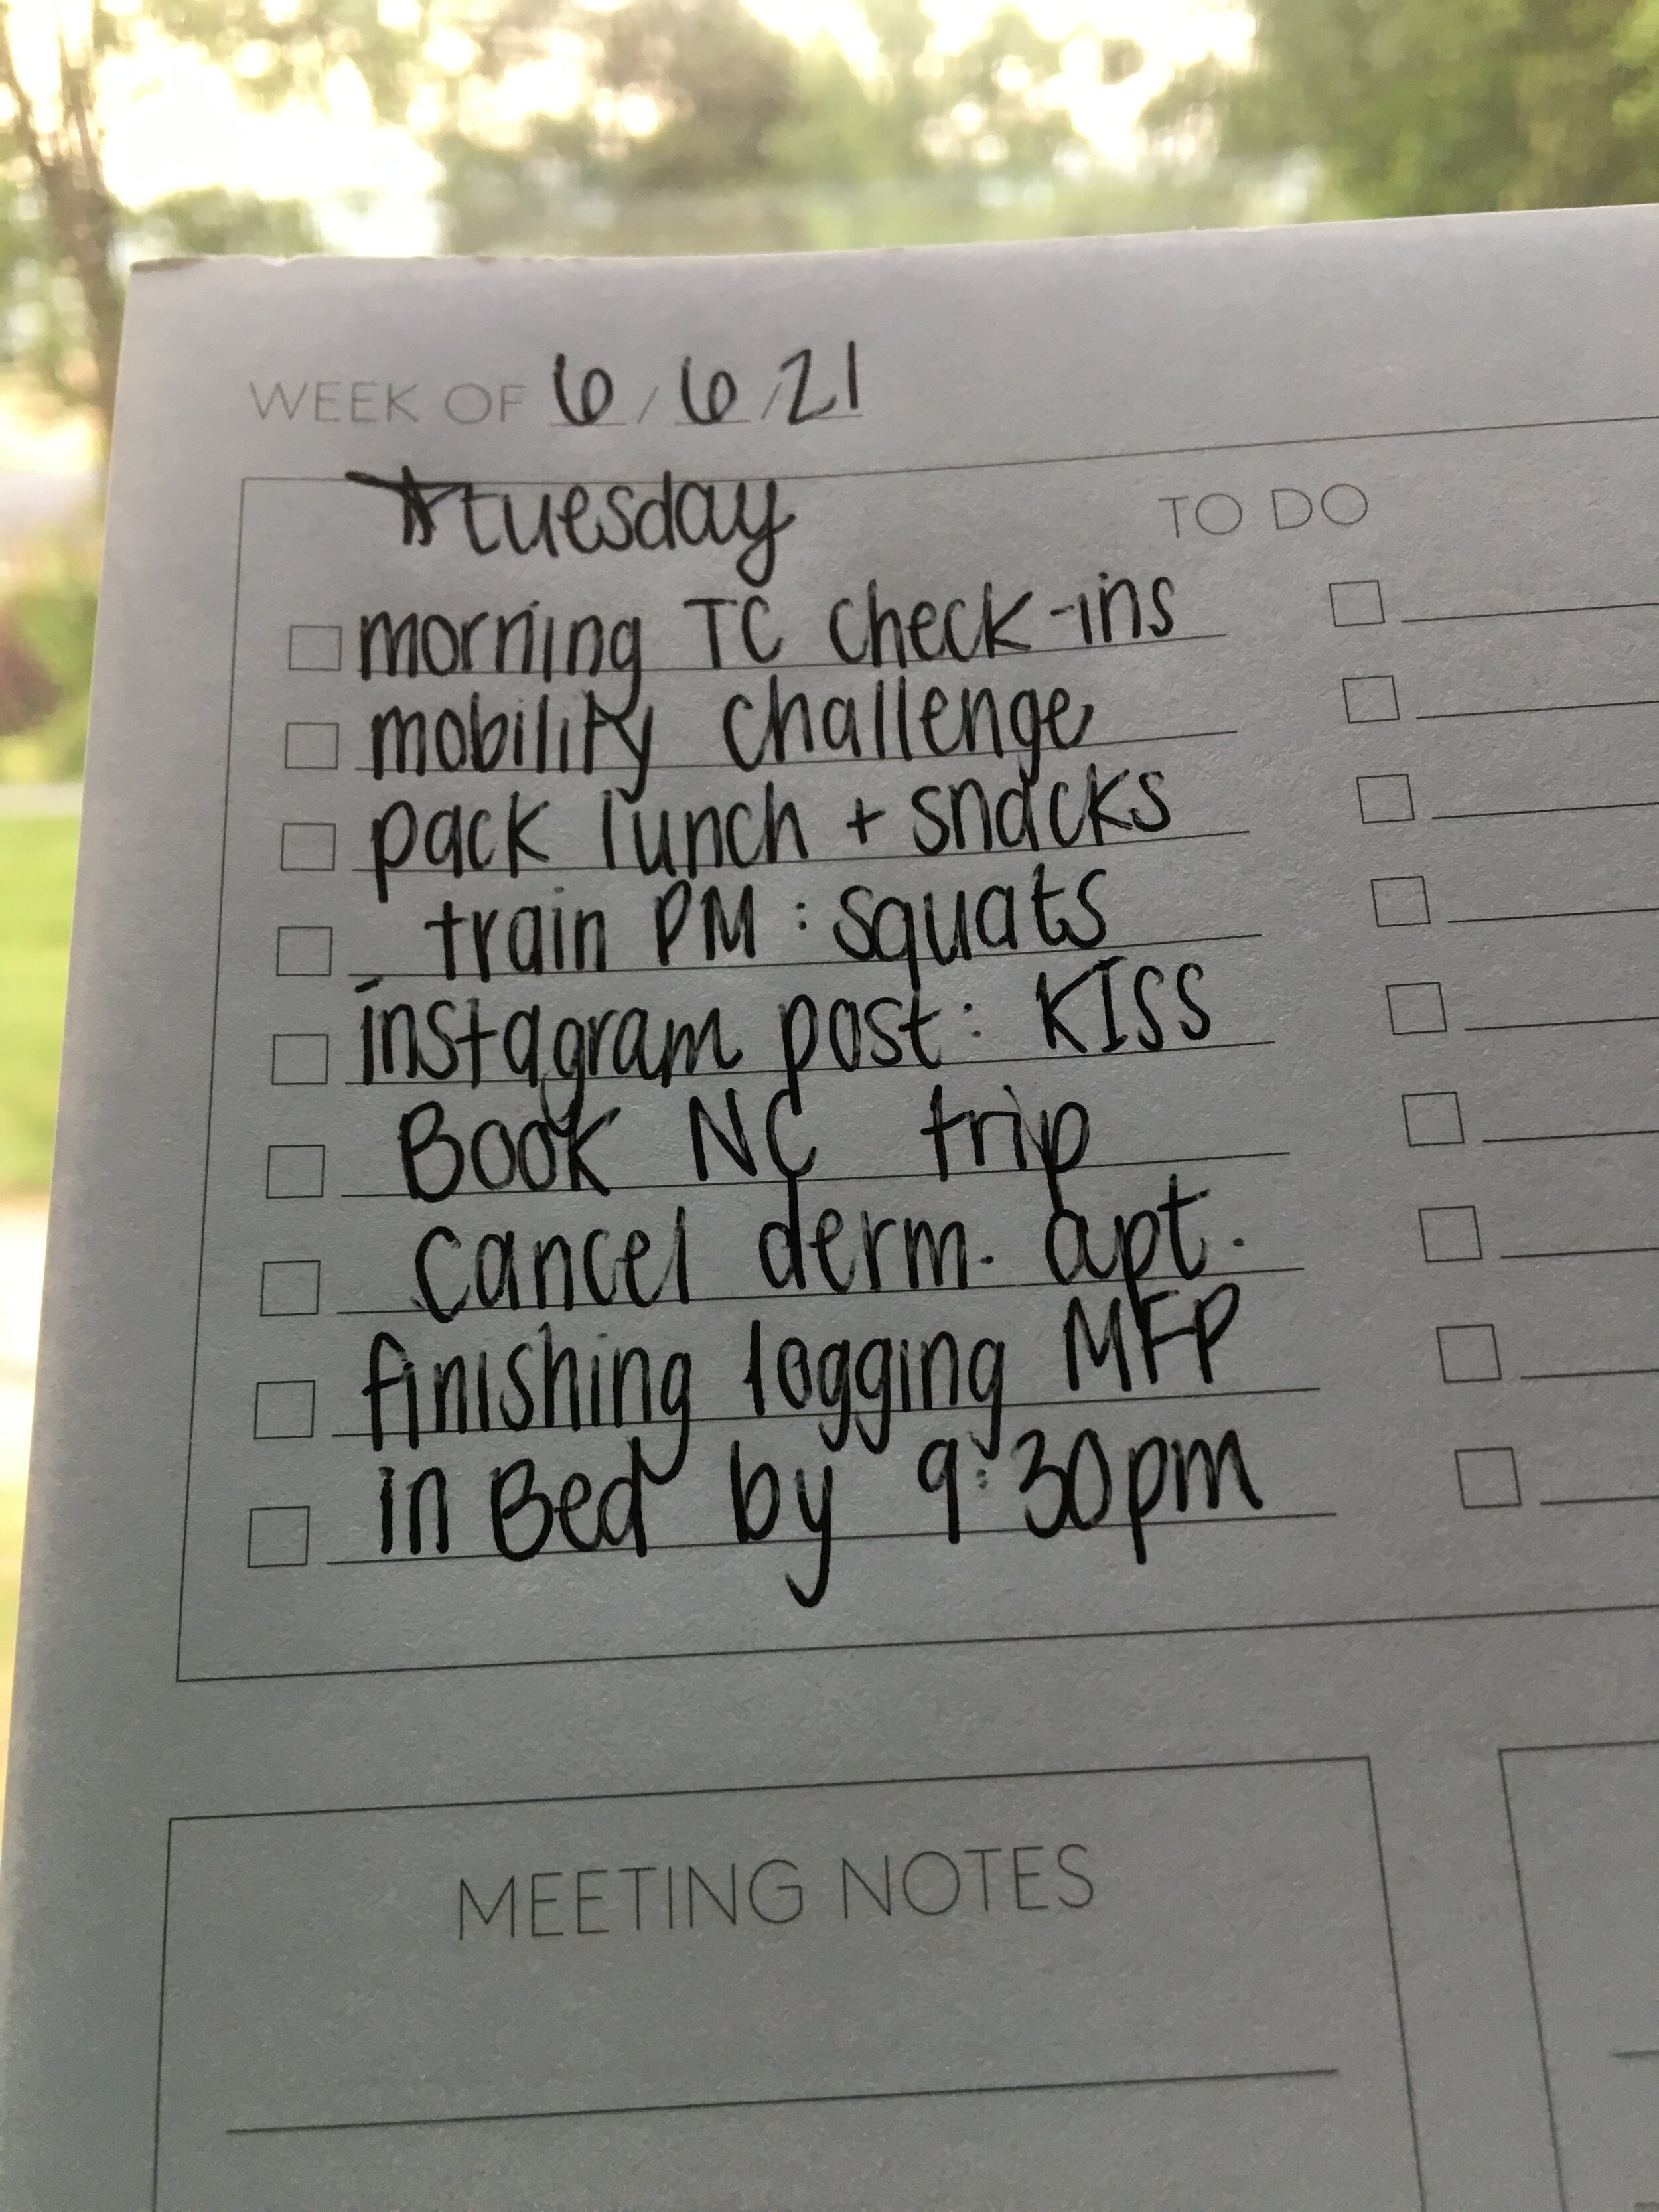 WEEK OF 6/6/21
tuesday
TO DO
morning TC check-ins
mobility challenge
pack lunch + snacks
train PM: squats
instagram post: KISS
Book NC trip
cancel derm. apt.
finishing logging MFP
in Bed by 9:30pm
MEETING NOTES